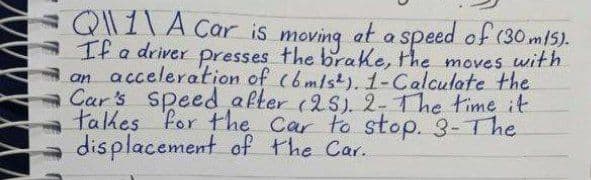 Q\\1\ A Car is moving at a speed of (30m/s).
If a driver presses the brake, the moves with
an acceleration of (6m/s²). 1-Calculate the
Car's speed after (2S). 2- The time it
talkes for the Car to stop. 3- The
displacement of the Car.